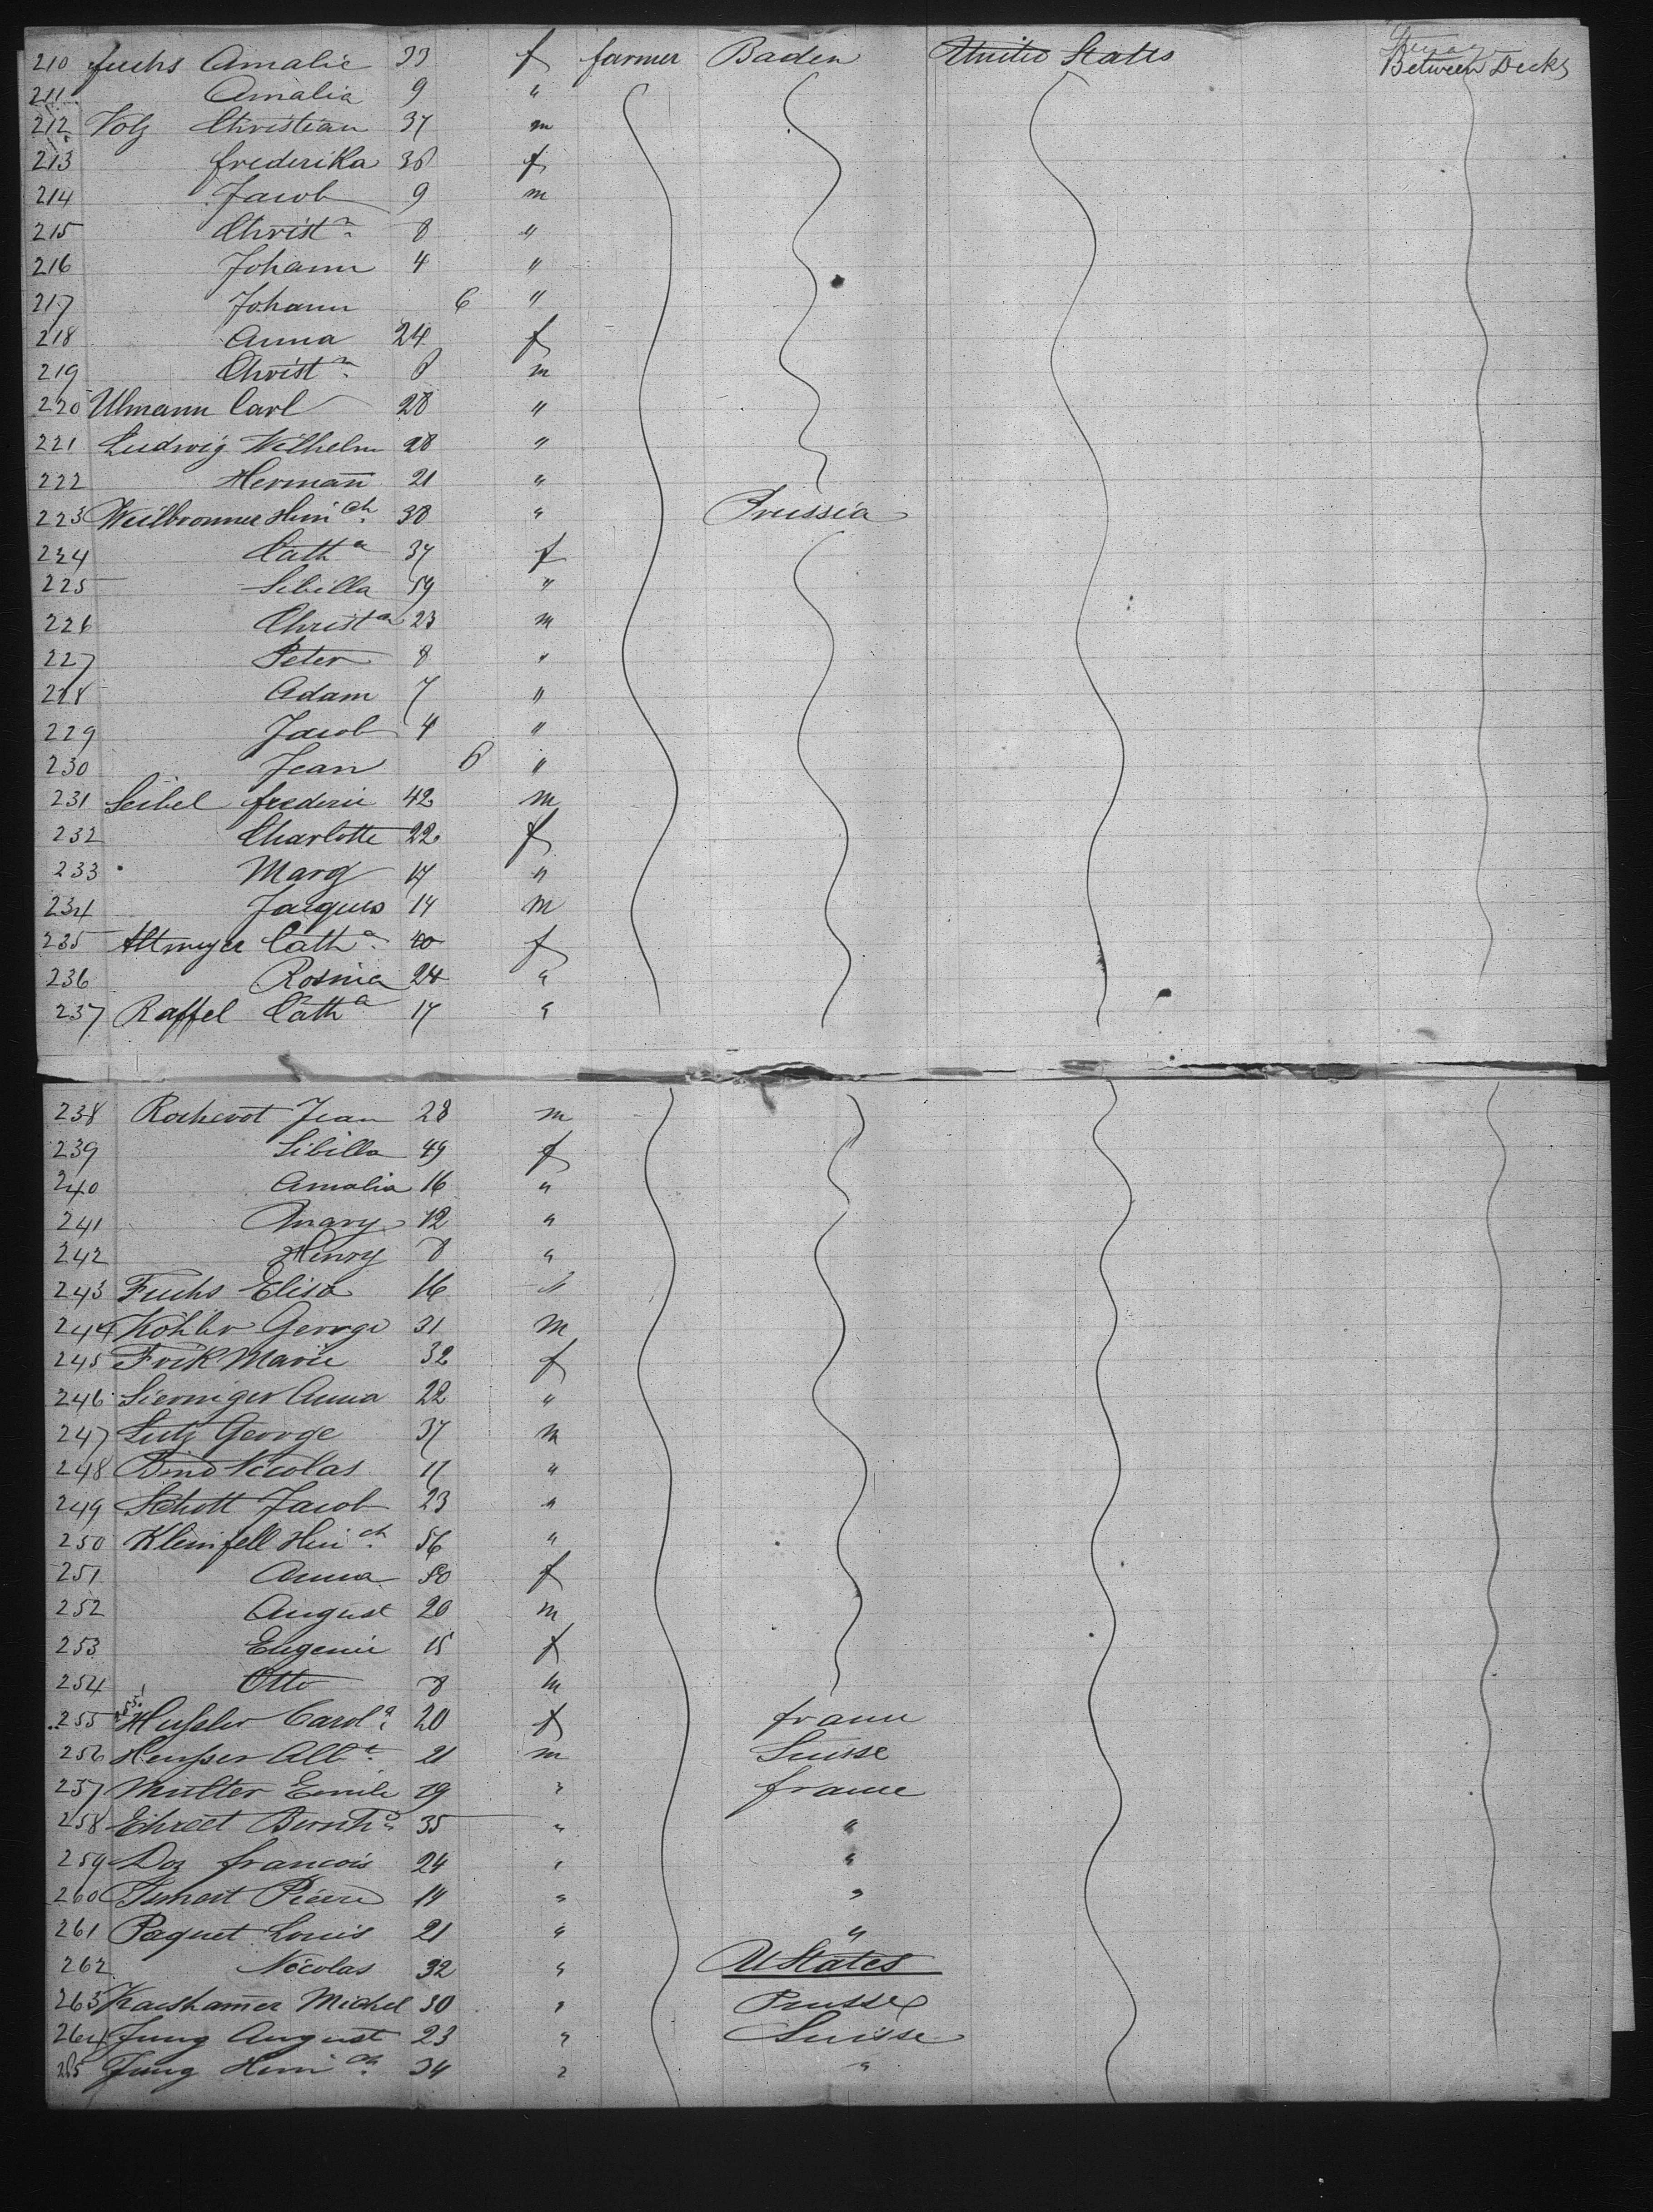 210 fuchs Amalie 33 f farmer Baden United States Between Decks
211 Amalia 9 "
212 Volz Christian 37 m
213 frederika 38 f
214 Jacob 9 m
215 Christn 8 "
216 Johann 4 "
217 Johann 6 "
218 Anna 24 f
219 Christn 8 m
220 Ulmann Carl 28 "
221 Ludwig Wilhelm 28 "
222 Hermañ 21 "
223 Weilbronner Heinch 38 " Prussia
224 Catha 37 f
225 Sibilla 59 "
226 Christn 23 m
227 Peter 8 "
228 Adam 7 "
229 Jacob 4 "
230 Jean 8 "
231 Seibel frederic 42 m
232 Charlotte 22 f
233 Marg 17 "
234 Jacques 14 m
235 Altmeyer Catha 40 f
236 Rosina 24 "
237 Raffel Catha 17 "
238 Rochevot Jean 28 m
239 Sibilla 49 f
240 Amalia 16 "
241 Mary 12 "
242 Henry 8 "
243 Fuchs Elisa 16 "
244 Köhler George 31 m
245 Frik Marie 32 f
246 Anna 22 "
247 Lutz George 37 m
248 Nicolas 17 "
249 Schott Jacob 23 "
250 Kleinfell Heinch 56 "
251 Anna 50 f
252 August 20 m
253 Eugenie 15 f
254 Otto 8 m
255 Hussler Carola 20 f france
256 Heusser Albt 21 m Suisse
257 Multer Emile 19 " france
258 Ehret Bernhd 35 " "
259 Doz francois 24 " "
260 Pierre 14 " "
261 Paquet Louis 21 " "
262 Nicolas 32 " U States
263 Michel 30 " Prusse
264 Jung August 23 " Suisse
265 Jung Heinch 34 " "